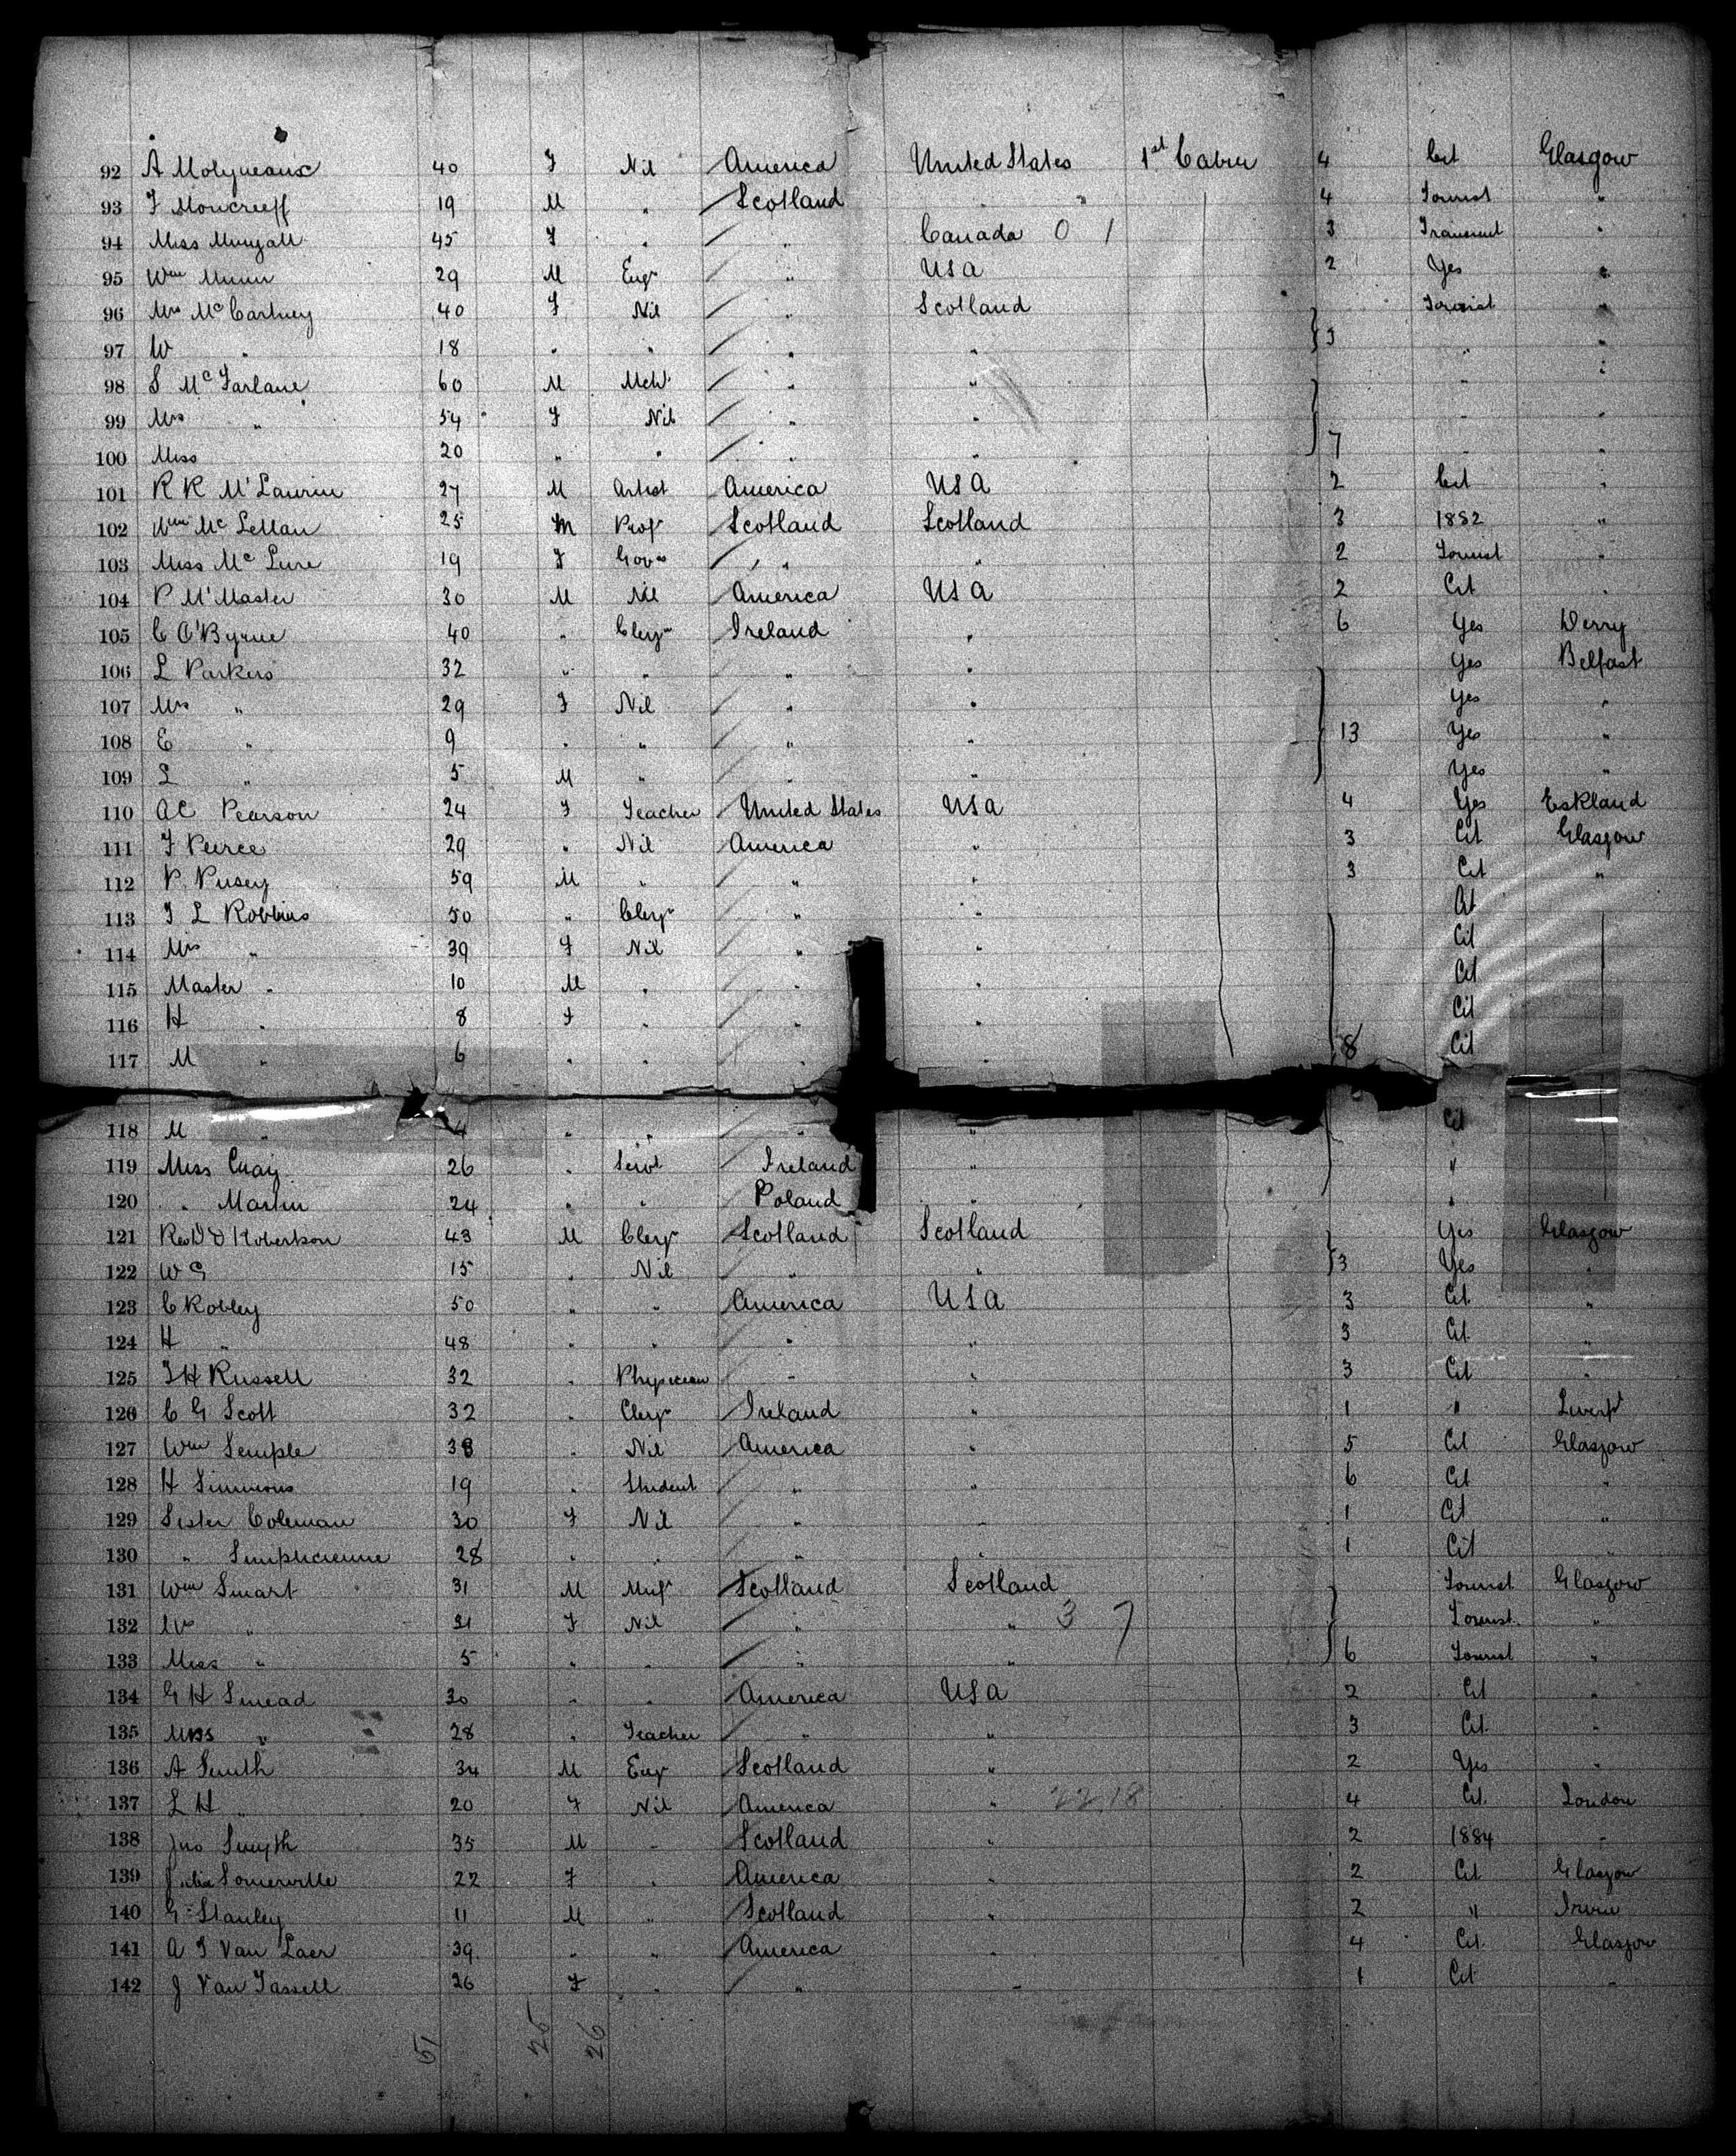 92 A Molyneaux 40 F Nil America United States 1st Cabin 4 Cit Glasgow
93 F Moncreeff 19 M " Scotland " " 4 Tourist "
94 Miss 45 F " " Canada 0 1 3 Transient "
95 Wm Munn 29 M Engr " USA 2 Yes "
96 Mrs McCartney 40 F Nil " Scotland Tourist "
97 W " 18 " " " " 3 " "
98 S McFarlane 60 M Mcht " " " "
99 Mrs " 54 F Nil " " " "
100 Miss 20 " " " " 7 " "
101 R R M'Laurin 27 M Artist America USA 2 Cit "
102 Wm McLellan 25 M Prof Scotland Scotland 3 1882 "
103 Miss McLure 19 F Govss " " 2 Tourist "
104 P M'Master 30 M Nil America USA 2 Cit "
105 C O'Byrne 40 " Clerg Ireland " 6 Yes Derry
106 L Parkers 32 " " " " Yes Belfast
107 Mrs " 29 F Nil " " Yes "
108 E " 9 " " " " 13 Yes "
109 L " 5 M " " " Yes "
110 AC Pearson 24 F Teacher United States USA 4 Yes Eskland
111 F Peirce 29 " Nil America " 3 Cit Glasgow
112 P Pusey 59 M " " " 3 Cit "
113 F L Robbins 50 " Clergn " " Cit
114 Mrs " 39 F Nil " " Cit
115 Master " 10 M " " " Cit
116 H " 8 F " " " Cit
117 M " 6 " " " " 8 Cit
118 M " 4 " " " " Cit
119 Miss 26 " Servt Ireland " "
120 " Martin 24 " " Poland " "
121 Revd D Robertson 43 M Clergn Scotland Scotland Yes Glasgow
122 W G 15 " Nil " " 3 Yes "
123 C Robley 50 " " America USA 3 Cit "
124 H " 48 " " " " 3 Cit "
125 T H Russell 32 " Physician " " 3 Cit "
126 C G Scott 32 " Clergn Ireland " 1 " Liverpl
127 Wm Semple 38 " Nil America " 5 Cit Glasgow
128 H Simmons 19 " Student " " 6 Cit "
129 Sister Coleman 30 F Nil " " 1 Cit "
130 " Simplicienne 28 " " " " 1 Cit "
131 Wm Smart 31 M Scotland Scotland Tourist Glasgow
132 Mrs " 31 F Nil " " 3 7 Tourist "
133 Miss " 5 " " " " 6 Tourist "
134 G H Smead 30 " " America USA 2 Cit "
135 Miss " 28 " Teacher " " 3 Cit "
136 A Smith 34 M Engr Scotland " 2 Yes "
137 L H " 20 F Nil America " 22 18 4 Cit London
138 Jno Smyth 35 M " Scotland " 2 1884 "
139 Julia Somerville 22 F " America " 2 Cit Glasgow
140 G Stanley 11 M " Scotland " 2 " Irvine
141 A J Van Laer 39 " " America " 4 Cit Glasgow
142 J Van Tassell 26 F " " " 1 Cit "
51 25 26